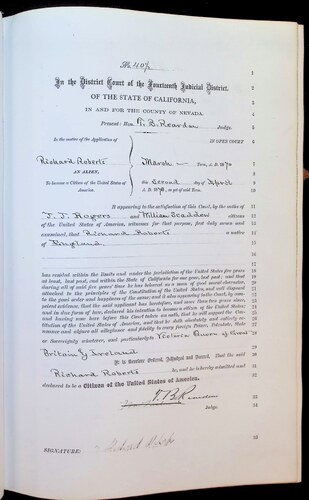 In the District Court of the Fourteenth Judicial District.
OF THE STATE OF CALIFORNIA,
IN AND FOR THE COUNTY OF NEVADA.
Present: Hon. T. B. Reardan Judge.
In the matter of the Application of IN OPEN COURT
Richard Roberts March Term, A. D. 1870
AN ALIEN,
To become a Citizen of the United States of America
this Second day of April
A. D. 1870, as part of said Term.
It appearing to the satisfaction of this Court, by the oaths of
J. J. Rogers and William Scaddon citizens
of the United States of America, witnesses for that purpose, first duly sworn and
examined, that Richard Roberts a native
of England
has resided within the limits and under the jurisdiction of the United States five years
at least, last past, and within the State of California for one year, last past; and that
during all of said five years' time he has behaved as a man of good moral character,
attached to the principles of the Constitution of the United States, and well disposed
to the good order and happiness of the same; and it also appearing to the Court, by
competent evidence, that the said applicant has heretofore, and more than two years since,
and in due form of law, declared his intention to become a citizen of the United States; and
having now here before this Court taken an oath, that he will support the
Constitution of the United States of America, and that he doth absolutely and entirely
renounce and abjure all allegiance and fidelity to every foreign Prince, Potentate, State
or Sovereignty whatever, and particularly to Victoria Queen of Great
Britain & Ireland
It is therefore Ordered, Adjudged and Decreed, That the said
Richard Roberts be, and he is hereby admitted and
declared to be a Citizen of the United States of America.
T. B. Reardan
Judge.
SIGNATURE: Richard Roberts